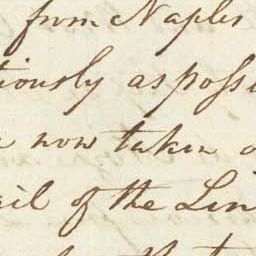 from Naples
tiously as possi
now taken
ail of the Lin